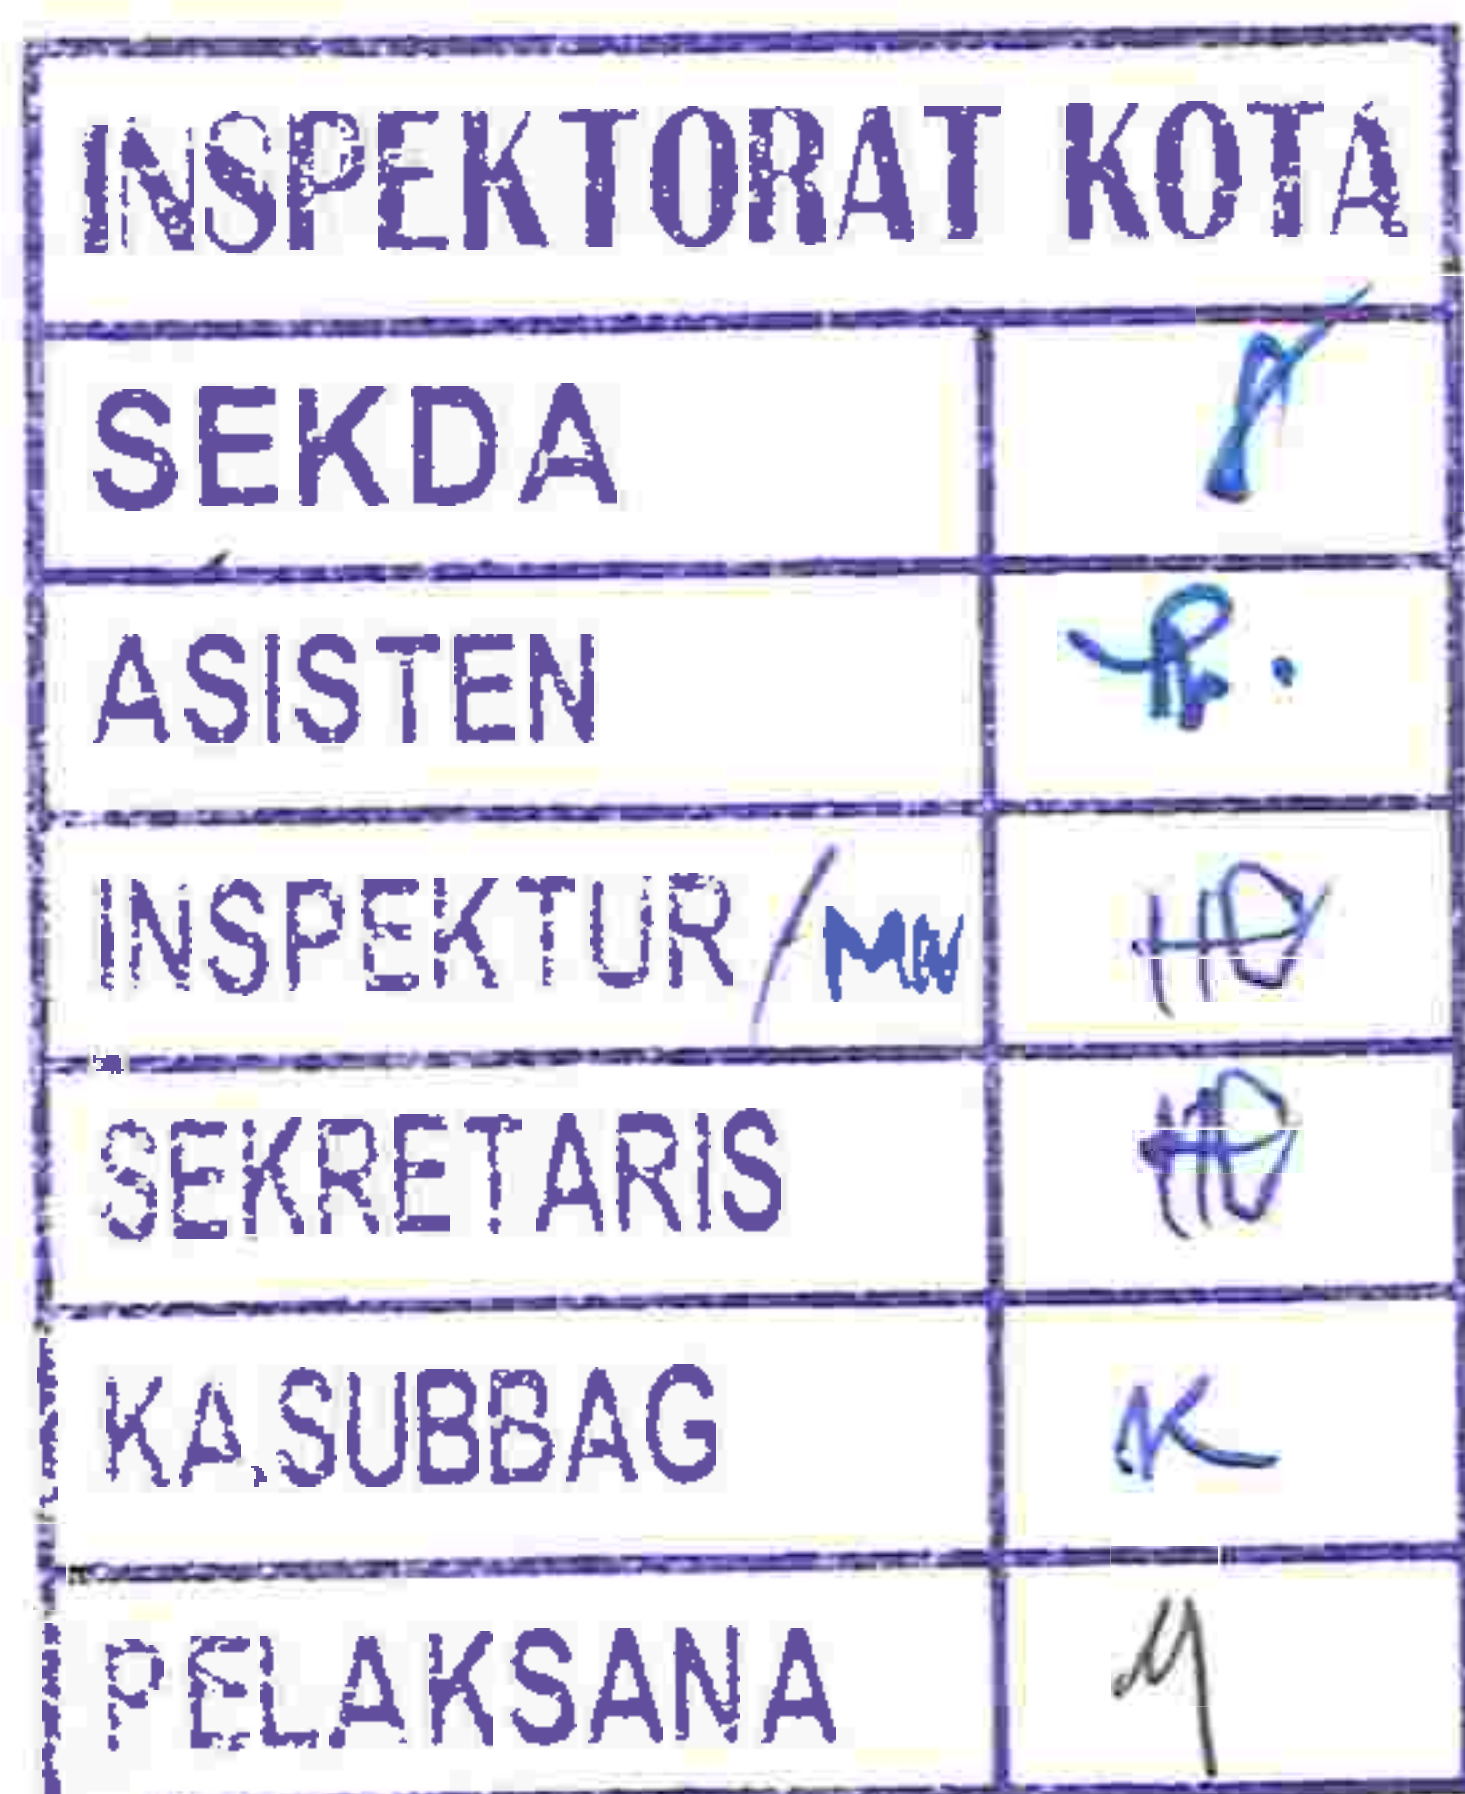 INSPEKTORAT KOTA
SEKDA
ASISTEN
INSPEKTUR /
SEKRETARIS
KA.SUBBAG
PELAKSANA